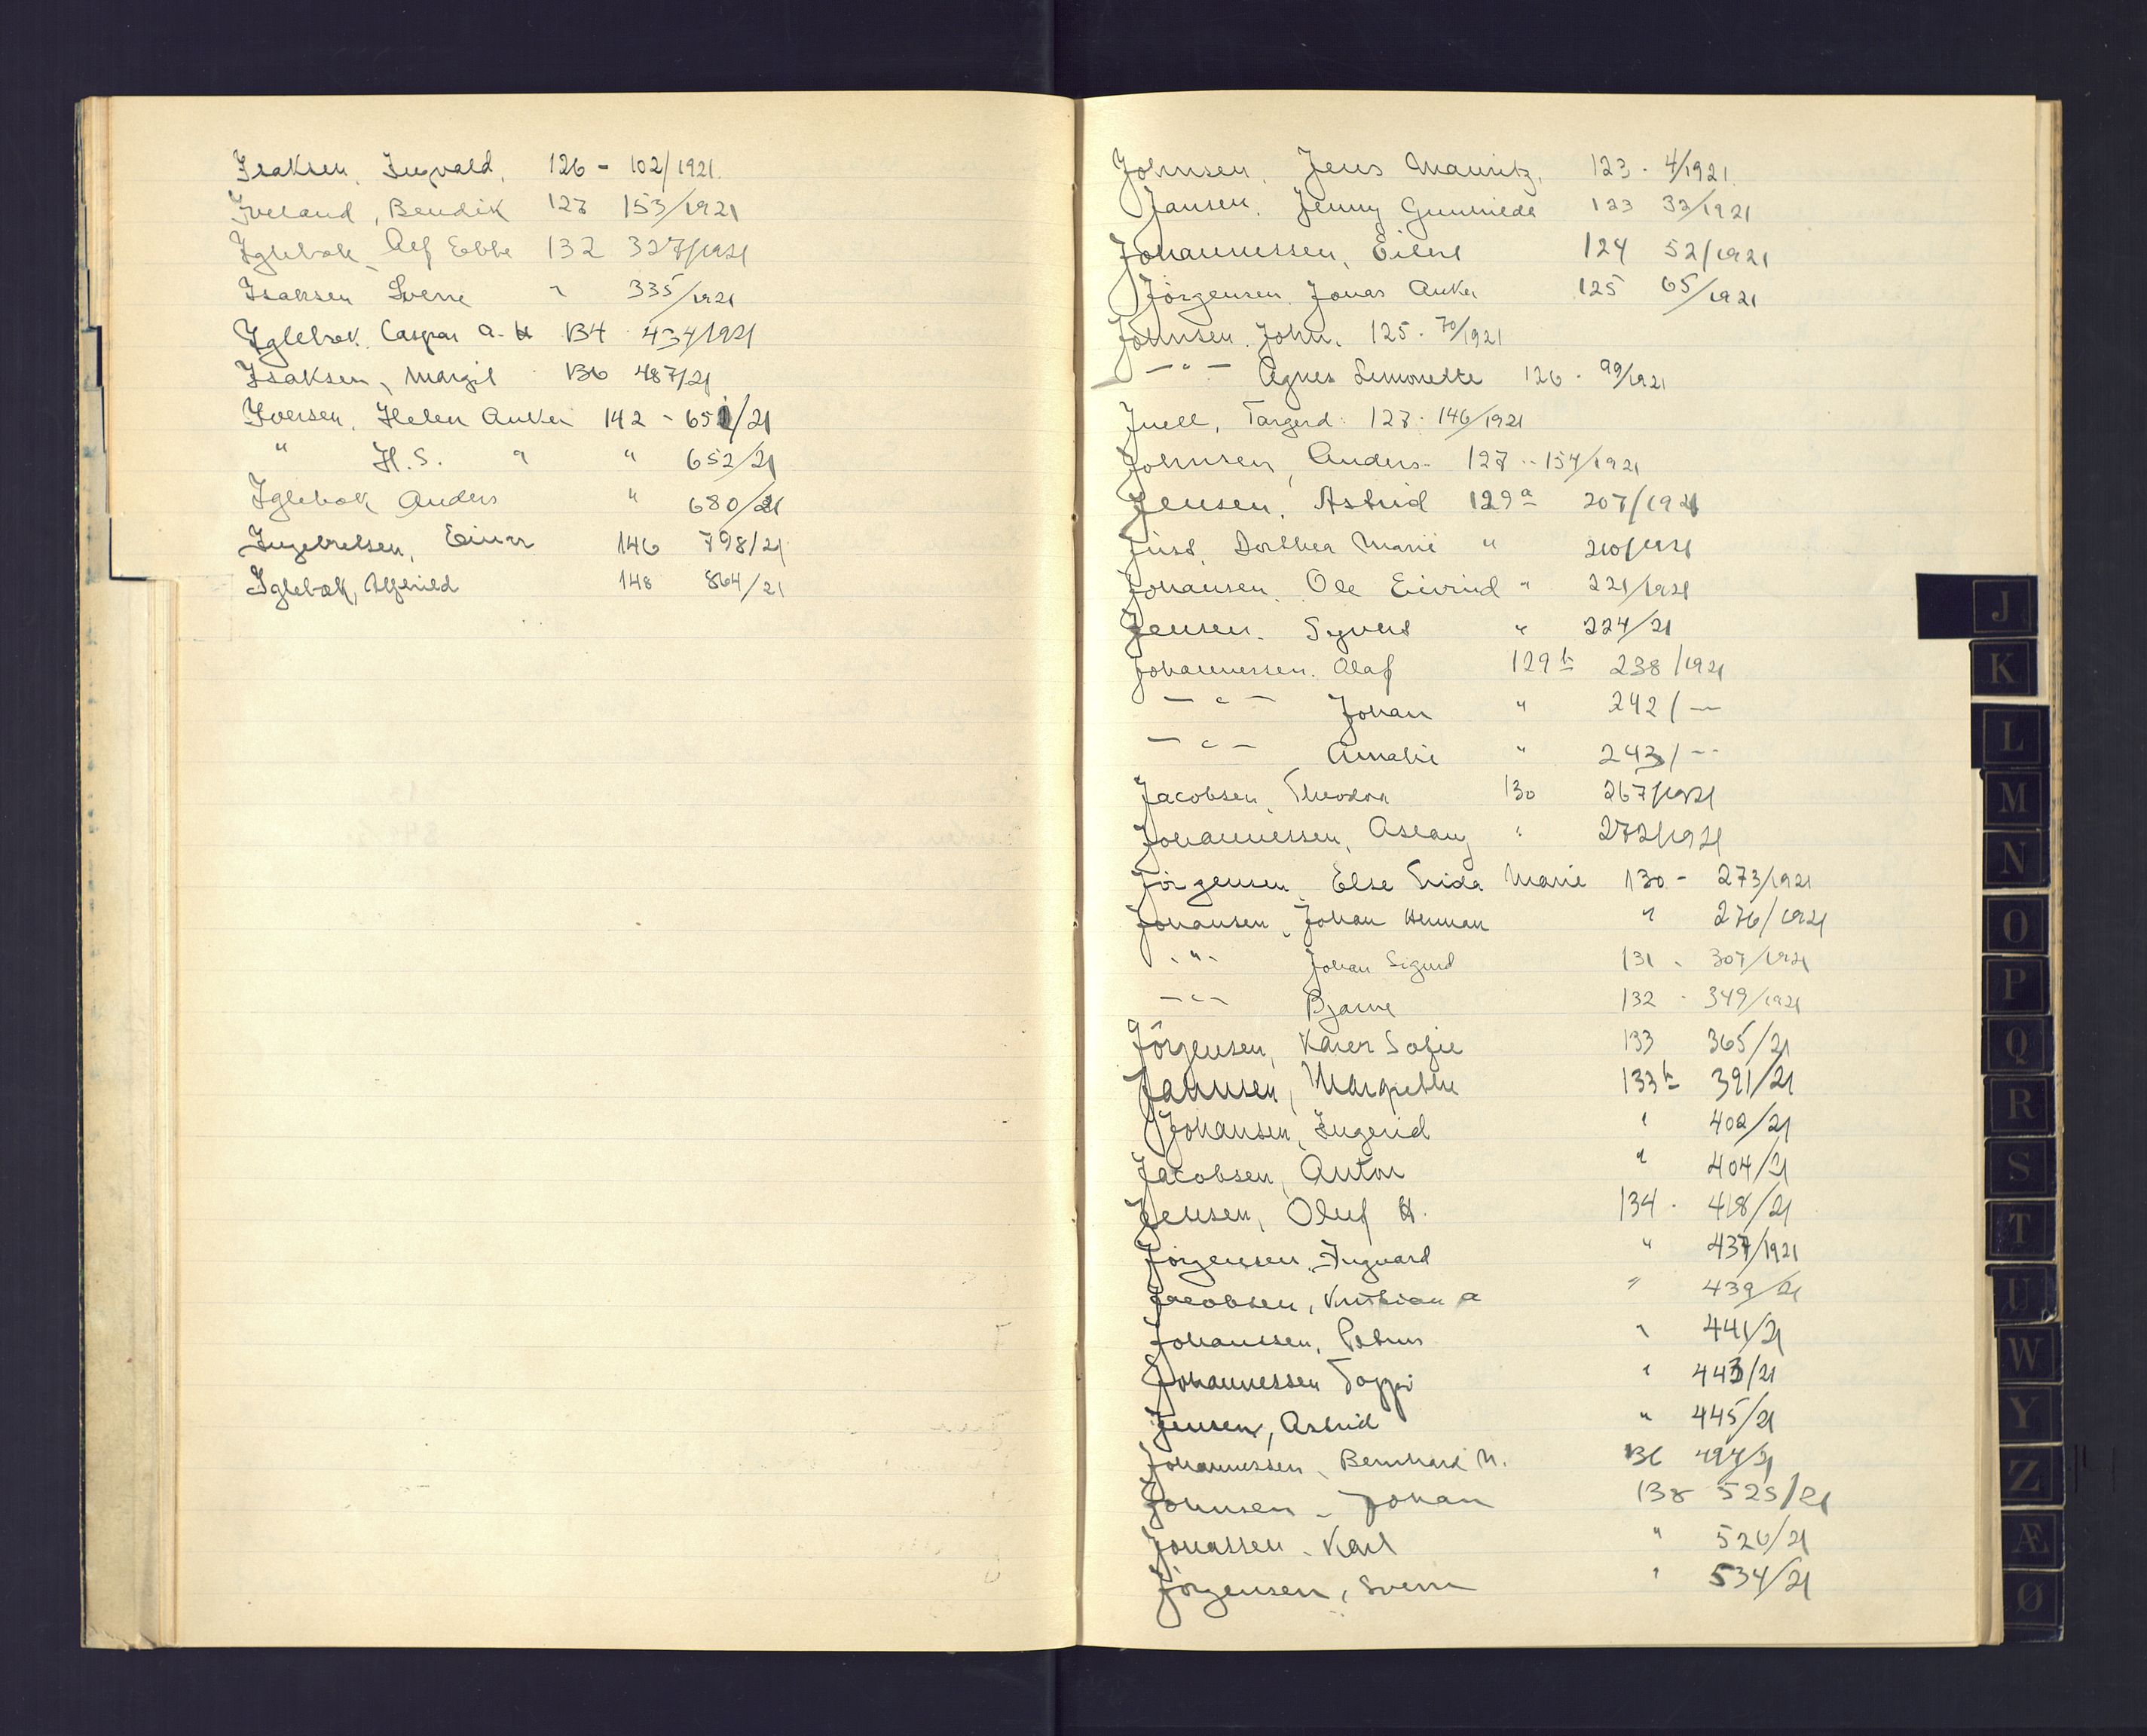 Isaksen, Ingvald, 126 - 102/1921.
Iveland, Bendik 127 153/1921
Iglebæk, Alf Ebbe 132 327/1921
Isaksen Sverre " 335/1921
Iglebæk. Caspar A. H 134 434/1921
Isaksen, Margit 136 487/21
Iversen, Helen Anker 142 - 651/21
" H.S. " " 652/21
Iglebæk Anders " 680/21
Ingebretsen, Einar 146 798/21
Iglebæk, Alfhild 148 864/21
Johnsen, Jens Mauritz, 123 - 4/1921.
Jansen, Jenny Gunhilde 123 32/1921
Johannessen, Eilert 124 52/1921
Jörgensen, Jonas Anker 125 65/1921
Johnsen, John, 125 - 70/1921
— " — Agnes Simonette 126 - 99/1921
Juell, Targerd 127 - 146/1921
Johnsen, Anders - 127 - 154/1921
Jensen, Astrid 129a 207/1921
Just, Dorthea Marie " 210/1921
Johansen, Ole Eivind " 221/1921
Jensen, Syvert " 224/21
Johannessen, Olaf 129b 238/1921
— " — Johan " 242/—
— " — Amalie " 243/—
Jacobsen, Theodor 130 267/1921
Johannessen, Aslaug " 272/1921
Jörgensen, Else Frida Marie 130 - 273/1921
Johansen, Johan Herman " 276/1921
- " - Johan Sigurd 131 - 307/1921
— " — Bjarne 132 - 349/1921
Jörgensen, Karen Sofie 133 365/21
Jahnsen, Margrethe 133b 391/21
Johansen, Ingerid " 402/21
Jacobsen, Anton " 404/21
Jensen, Oluf H. 134 - 418/21
Jörgensen, Ingvard " 437/1921
Jacobsen, Kristian A " 439/21
Johansen, Petrus " 441/21
Johannessen " 443/21
Jensen, Astrid " 445/21
Johannessen, Bernhard M. 136 494/21
Johnsen - Johan 138 525/21
Jonassen - Karl " 526/21
Jörgensen, Sverre " 534/21
J
K
L
M
N
O
P
Q
R
S
T
U
W
Y
Z
Æ
Ø